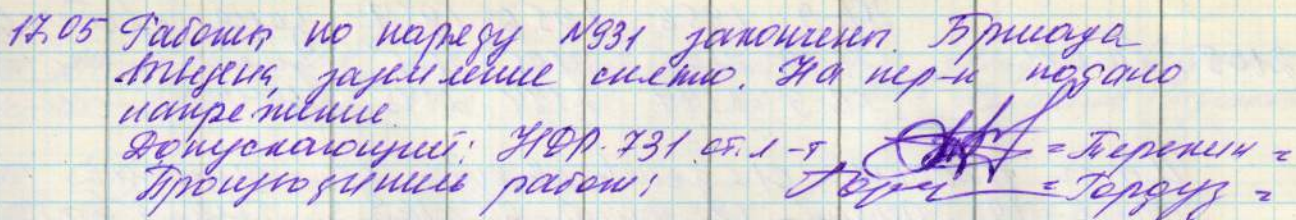 17.05 Работы по наряду №931 закончены. Бригада
выведена, заземление снято. На пер-к подано
напряжение
Допускающий: НДР-731 ст. л-т =Терехин=
Производитель работ: =Гордуз=